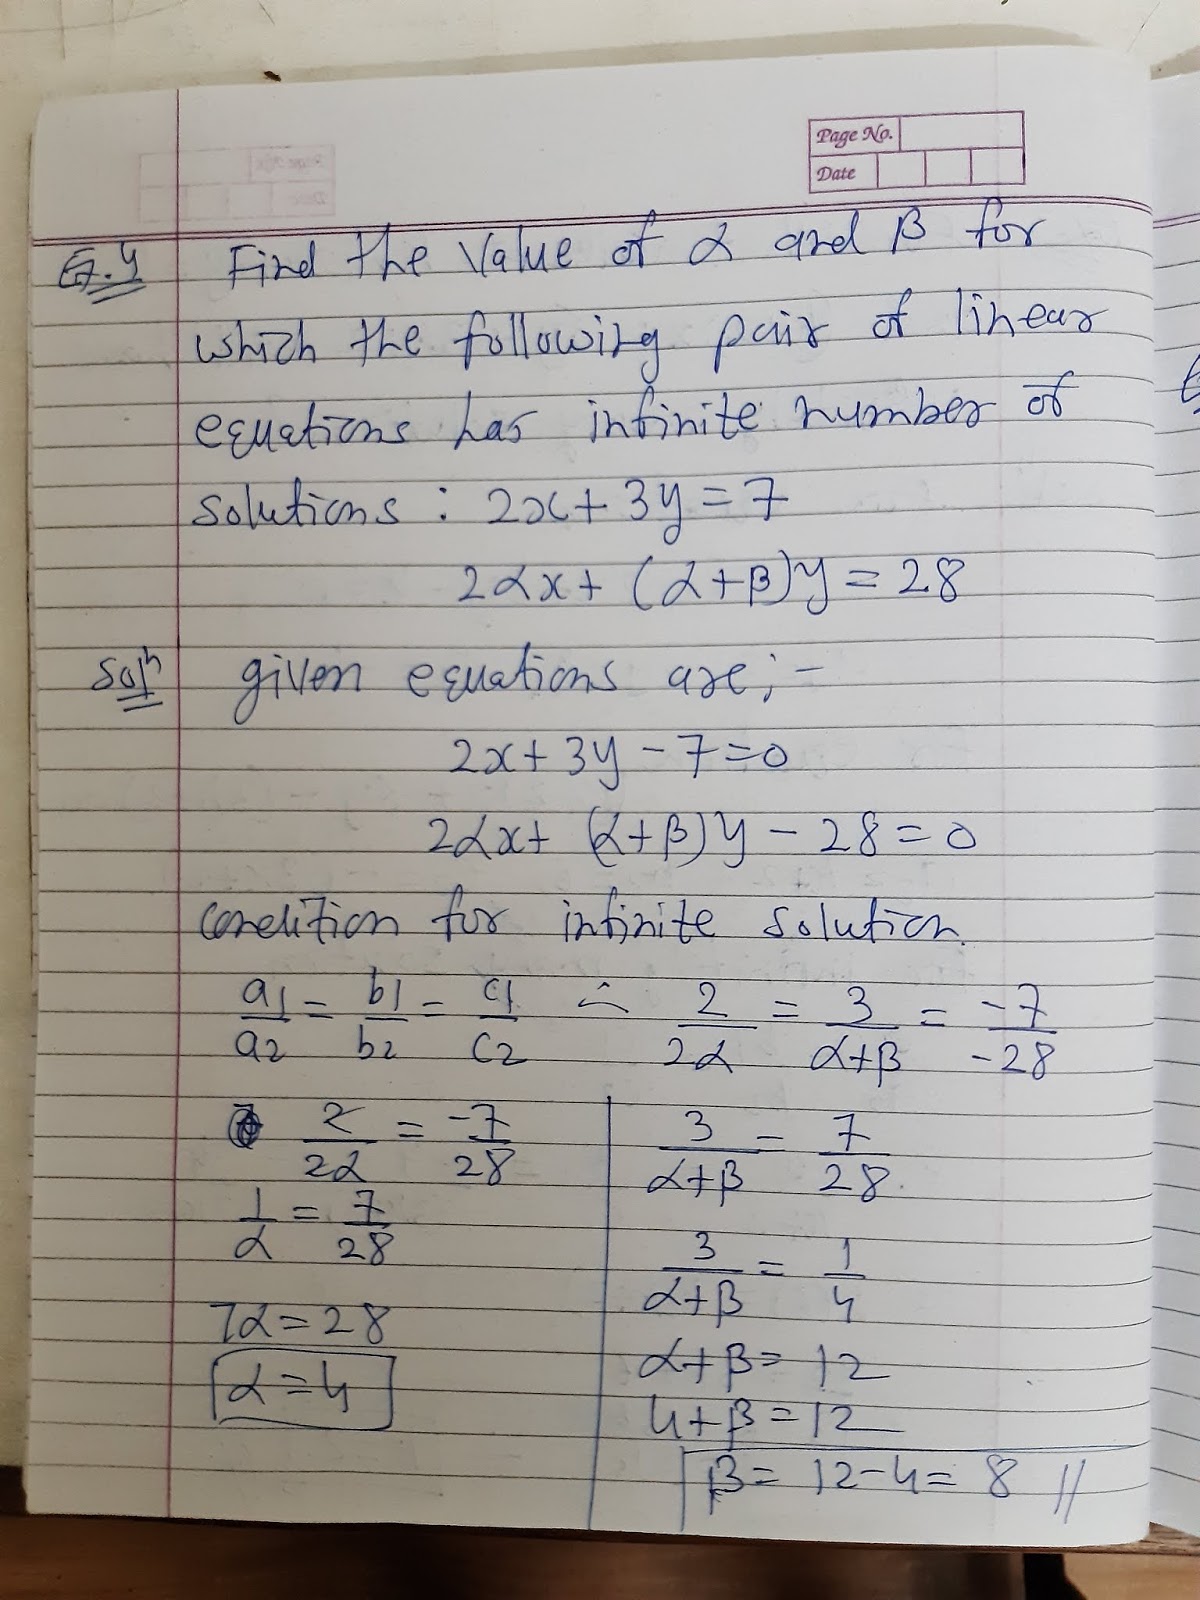 Page No.
Date
Ex.4 Find the value of α and β for
which the following pair of linear
equations has infinite number of
solutions : 2x + 3y = 7
2αx + (α+β)y = 28
Solⁿ given equations are;-
2x + 3y - 7 = 0
2αx + (α+β)y - 28 = 0
condition for infinite solution.
a1/a2 = b1/b2 = c1/c2 ∴ 2/2α = 3/α+β = -7/-28
2/2α = -7/28
1/α = 7/28
7α = 28
α = 4
3/α+β = 7/28
3/α+β = 1/4
α+β = 12
4+β = 12
β = 12-4 = 8 //